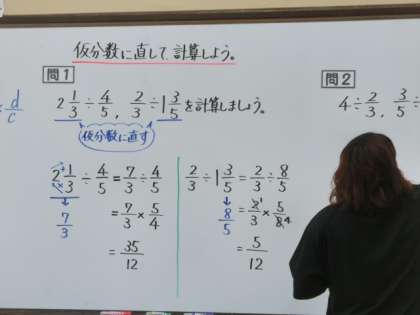 仮分数に直して、計算しよう。
問1
2 1/3 ÷ 4/5 , 2/3 ÷ 1 3/5 を計算しましょう。
仮分数に直す
2 1/3 ÷ 4/5 = 7/3 ÷ 4/5
7/3
= 7/3 × 5/4
= 35/12
2/3 ÷ 1 3/5 = 2/3 ÷ 8/5
8/5
= 2/3 × 5/8 1 4
= 5/12
問2
4 ÷ 2/3 , 3/5 ÷
d/c